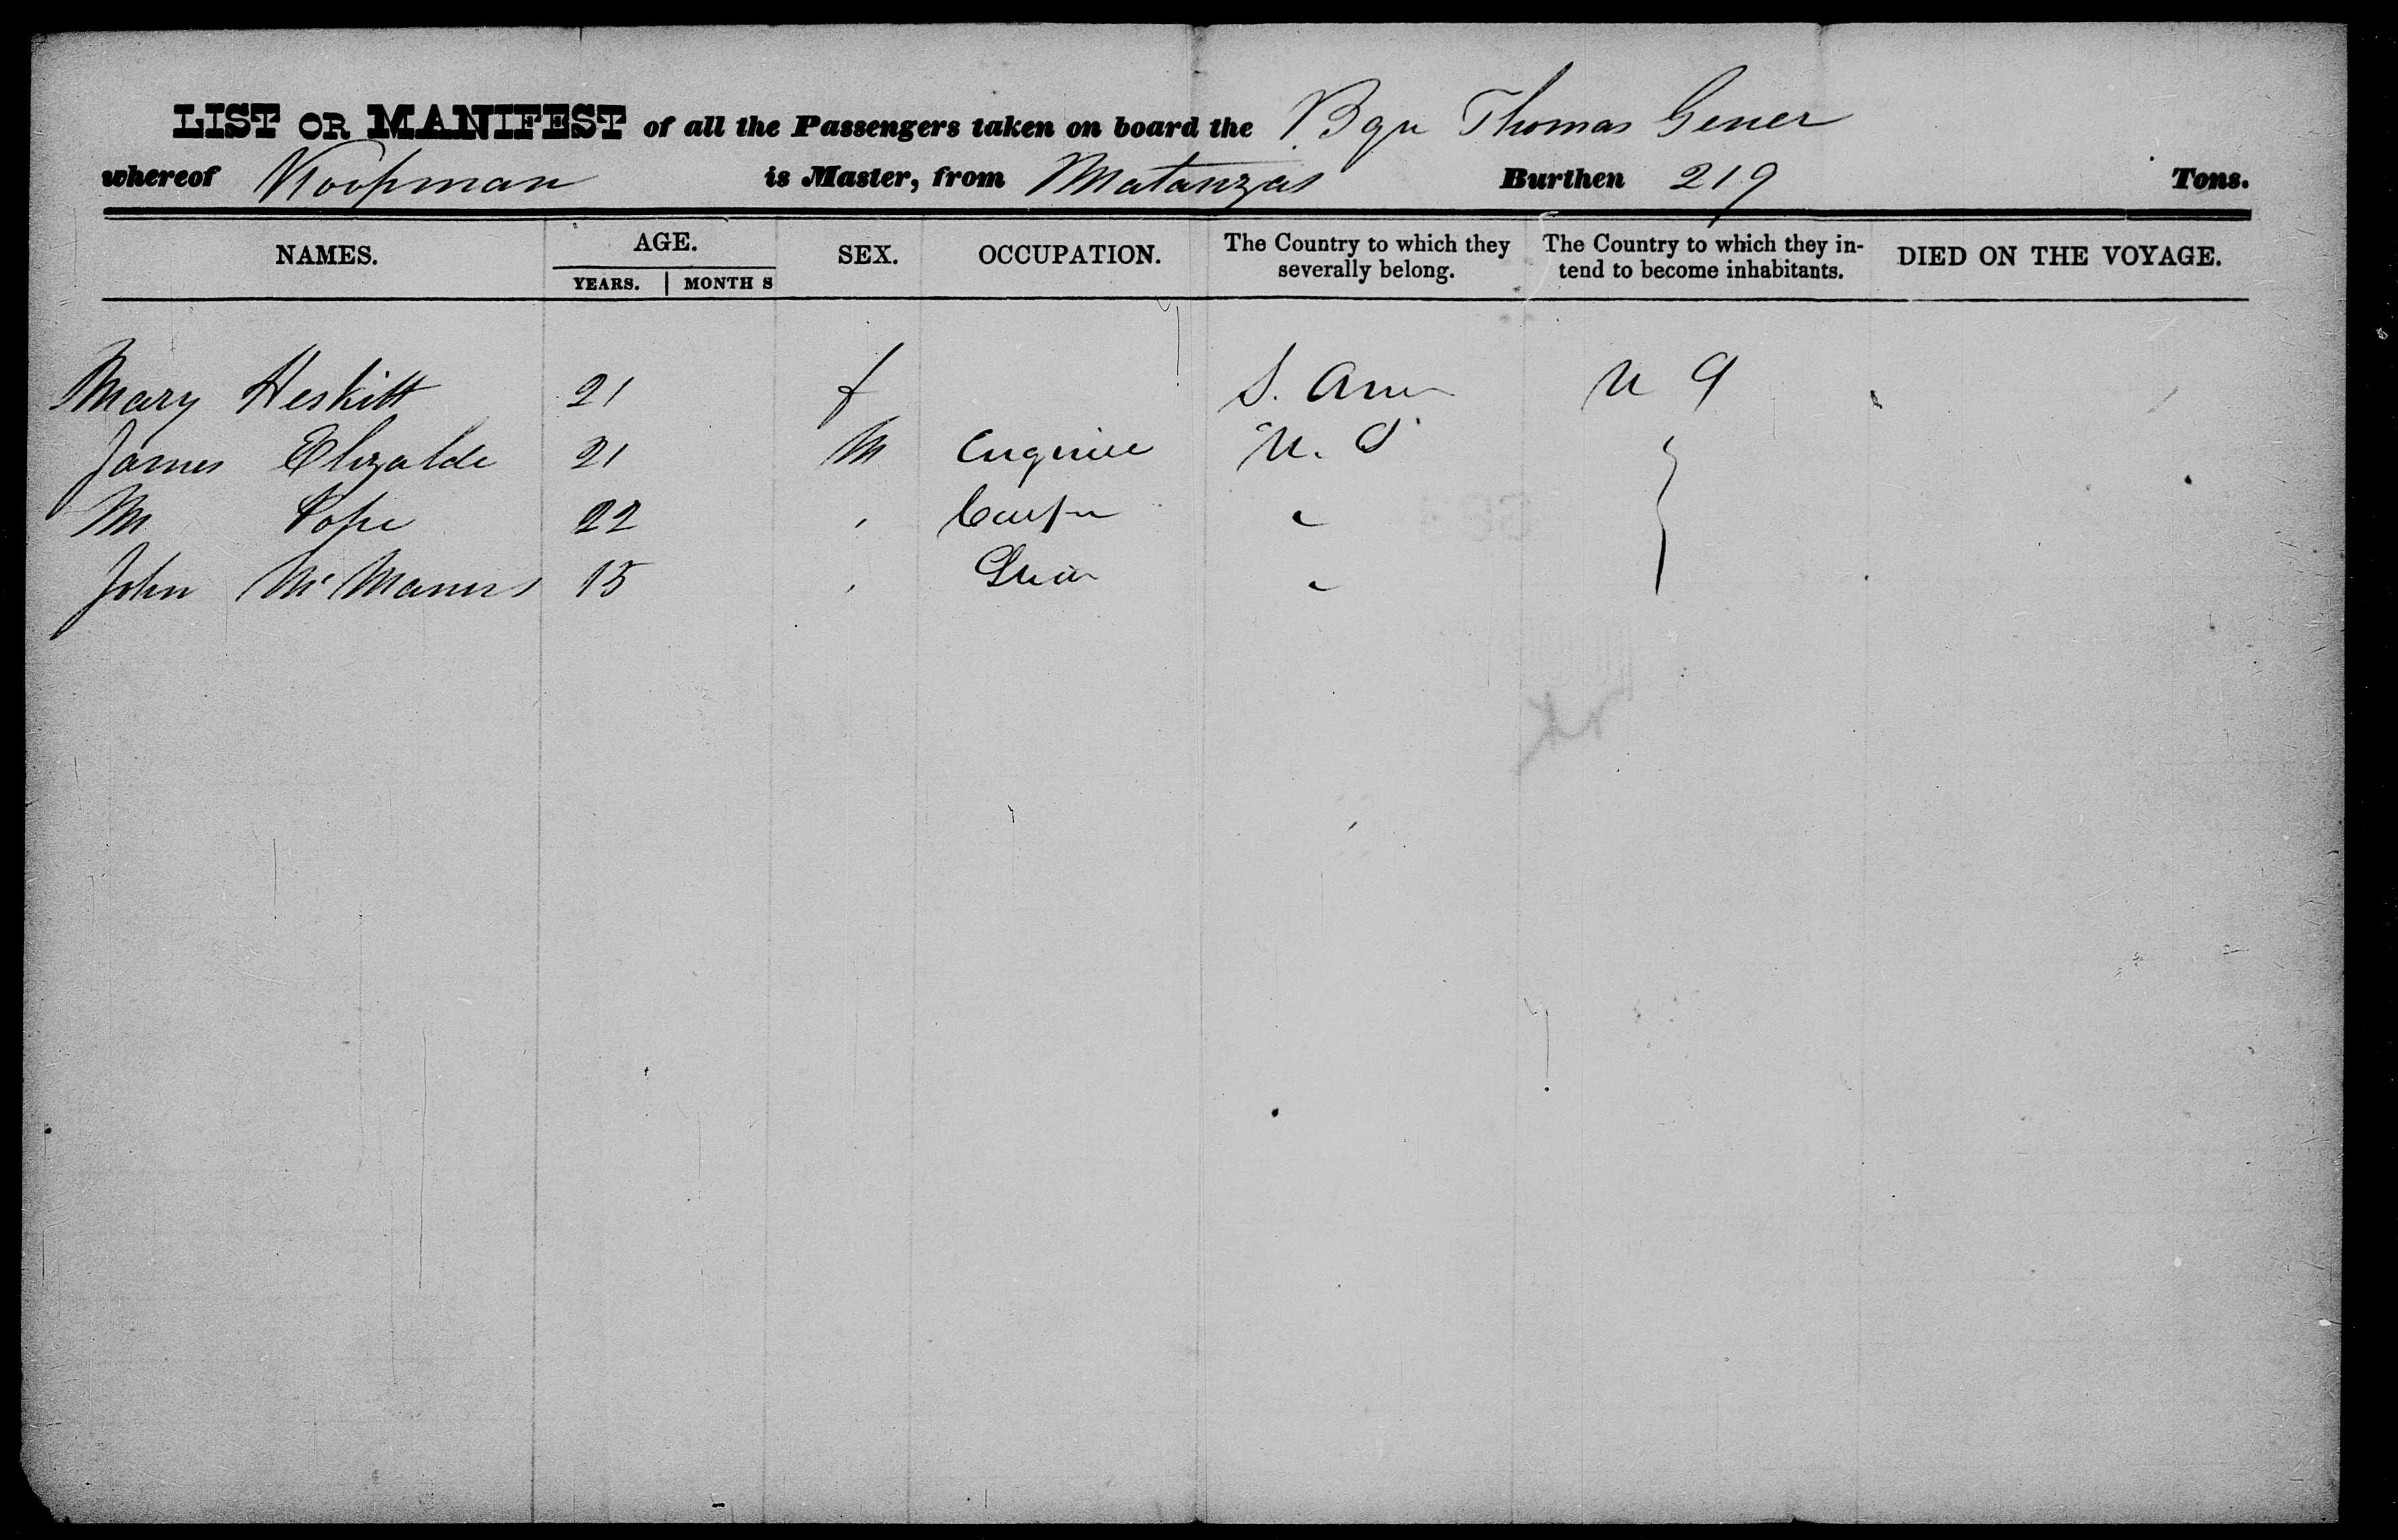 LIST OR MANIFEST of all the Passengers taken on board the Bqu Thomas Gener
whereof Koopman is Master, from Matanzas Burthen 219 Tons.
NAMES. AGE. SEX. OCCUPATION. The Country to which they severally belong. The Country to which they in-tend to become inhabitants. DIED ON THE VOYAGE.
YEARS. MONTHS
Mary Heskitt 21 f S. Am U S
James Elizalde 21 M Engineer U. S
M Pope 22 " Carpr "
John McManus 15 " "